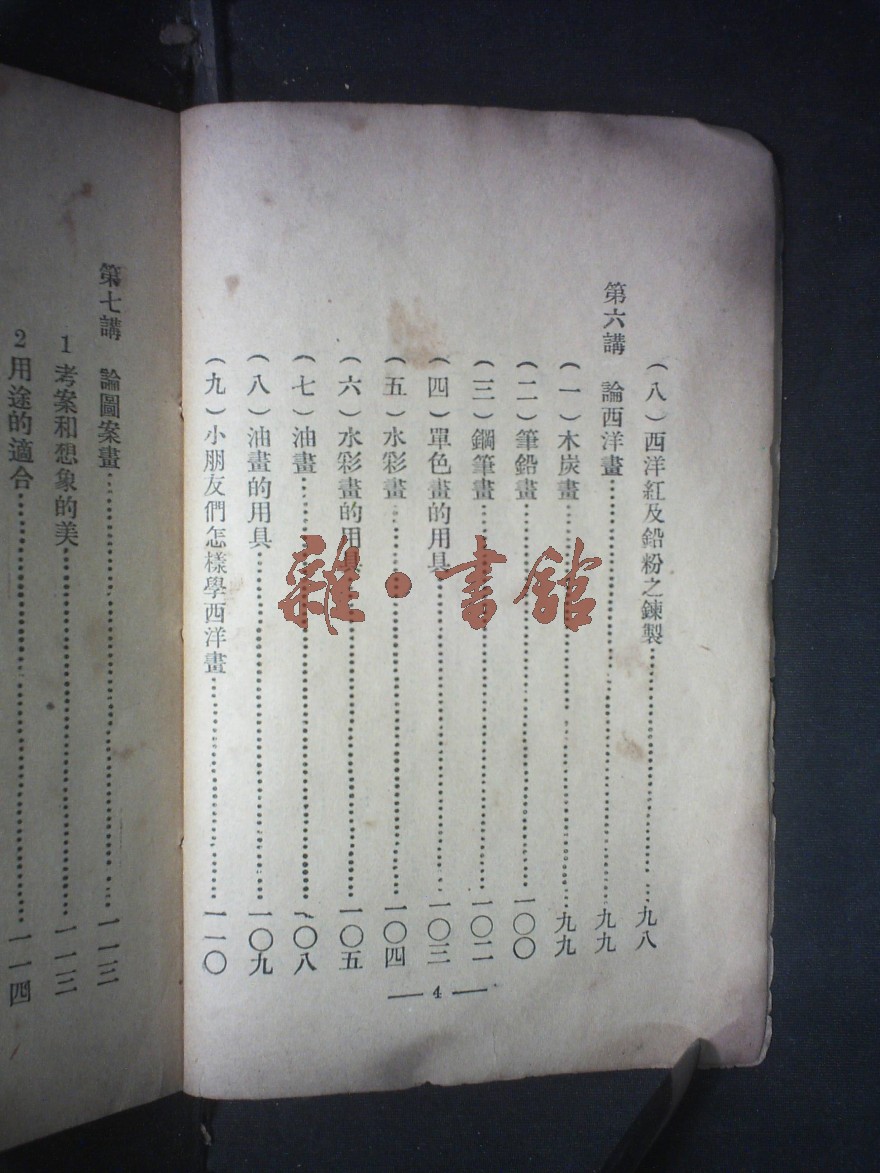 (八)西洋紅及鉛粉之鍊製……九八
第六講 論西洋畫……九九
(一)木炭畫……九九
(二)筆鉛畫……一〇〇
(三)鋼筆畫……一〇二
(四)單色畫的用具……一〇三
(五)水彩畫……一〇四
(六)水彩畫的用具……一〇五
(七)油畫……一〇八
(八)油畫的用具……一〇九
(九)小朋友們怎樣學西洋畫……一一〇
— 4 —
第七講 論圖案畫……一一三
1 考案和想象的美……一一三
2 用途的適合……一一四
雜·書館